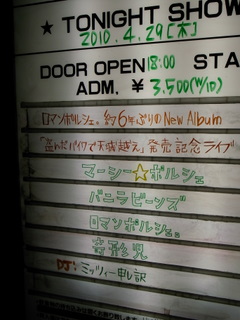 ★ TONIGHT SHOW
2010.4.29[木]
DOOR OPEN 18:00 STA
ADM. ¥ 3,500(W/1D)
ロマンポルシェ。約6年ぶりのNew Album
「盗んだバイクで天城越え」発売記念ライブ
マーシー☆ポルシェ
バニラビーンズ
ロマンポルシェ。
奇形児
DJ: ミッツィー申し訳